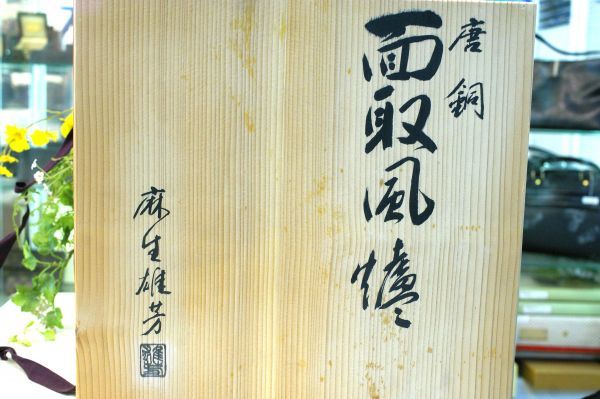 唐銅
面取風爐
麻生雄芳